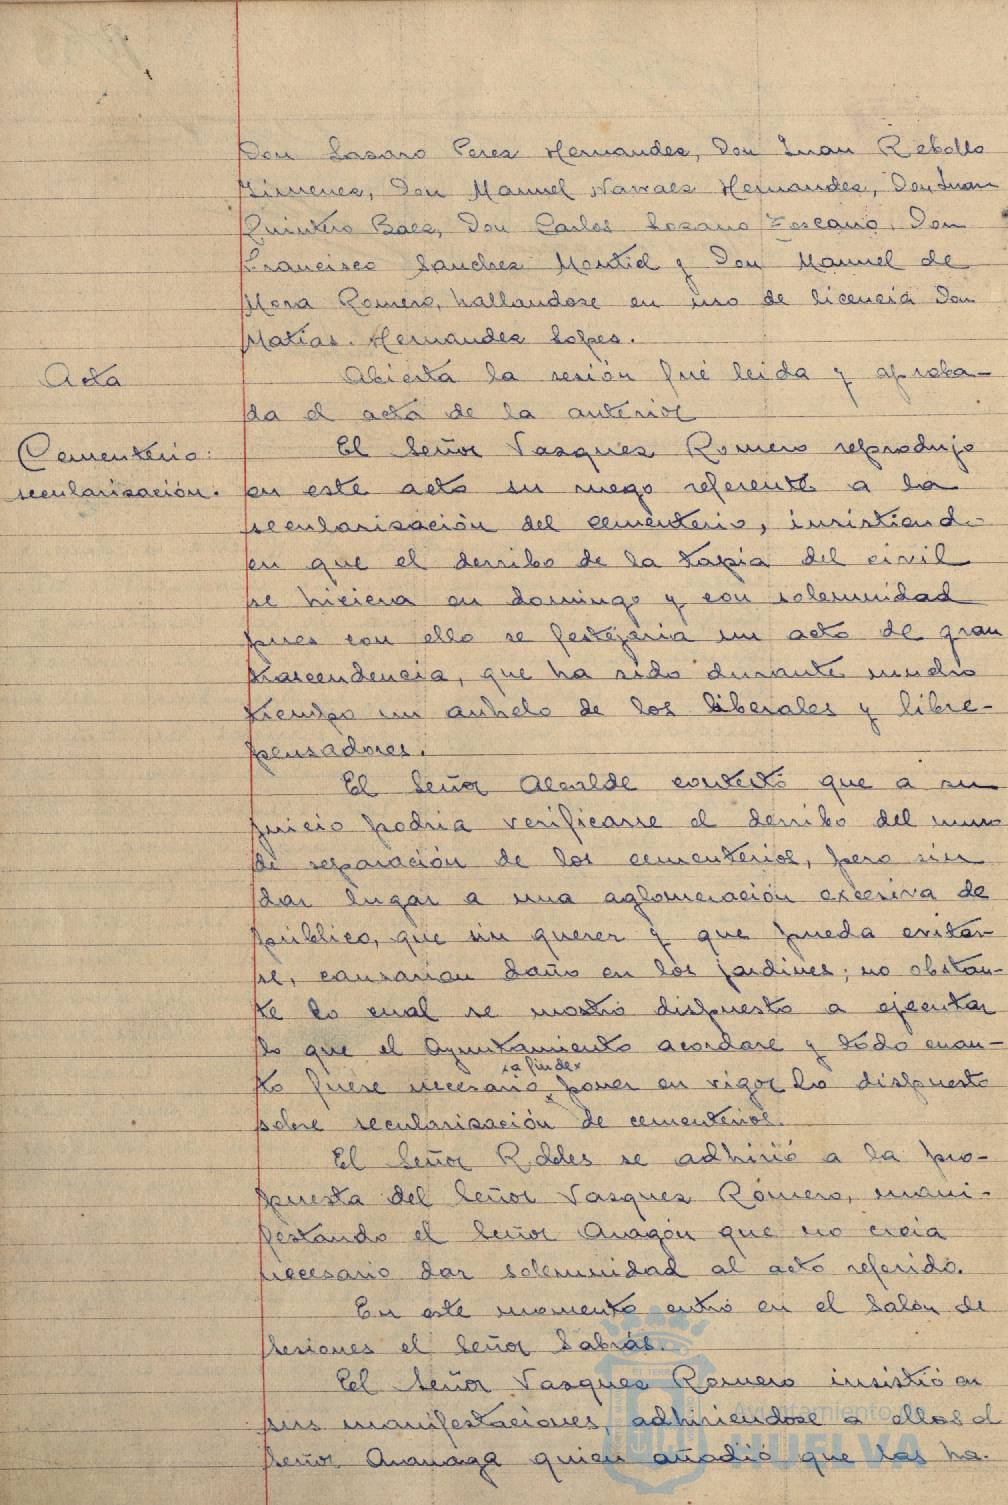 Don Lazaro Perez Hernandez, Don Juan Rebollo
Jimenez, Don Manuel Narvaez Hernandez, Don Juan
Quintero Baez, Don Carlos Lozano Toscano, Don
Francisco Sanchez Montiel y Don Manuel de
Mora Romero, hallandose en uso de licencia Don
Matías. Hernandez Lopez.
Acta
Abierta la sesión fué leida y aproba-
da el acta de la anterior
Cementerio:
secularización.
El Señor Vazquez Romero reprodujo
en este acto su ruego referente a la
secularización del cementerio, insistiendo
en que el derribo de la tapia del civil
se hiciera en domingo y con solemnidad
pues con ello se festejaria un acto de gran
trascendencia, que ha sido durante mucho
tiempo un anhelo de los liberales y libre-
pensadores.
El Señor Alcalde contestó que a su
juicio podria verificarse el derribo del muro
de separación de los cementerios, pero sin
dar lugar a una aglomeración excesiva de
público, que sin querer y que pueda evitar-
se, causarian daño en los jardines; no obstan-
te lo cual se mostró dispuesto a ejecutar
lo que el Ayuntamiento acordare y todo cuan-
to fuese necesario a fin de poner en vigor lo dispuesto
sobre secularización de cementerios.
El Señor Robles se adhirió a la pro-
puesta del Señor Vazquez Romero, mani-
festando el Señor Aragón que no creia
necesario dar solemnidad al acto referido.
En este momento entró en el Salón de
Sesiones el Señor Sabrás.
El Señor Vazquez Romero insistió en
sus manifestaciones, adhiriendose a ellas el
Señor Aranaga quien añadió que las ha-
Ayuntamiento de
HUELVA